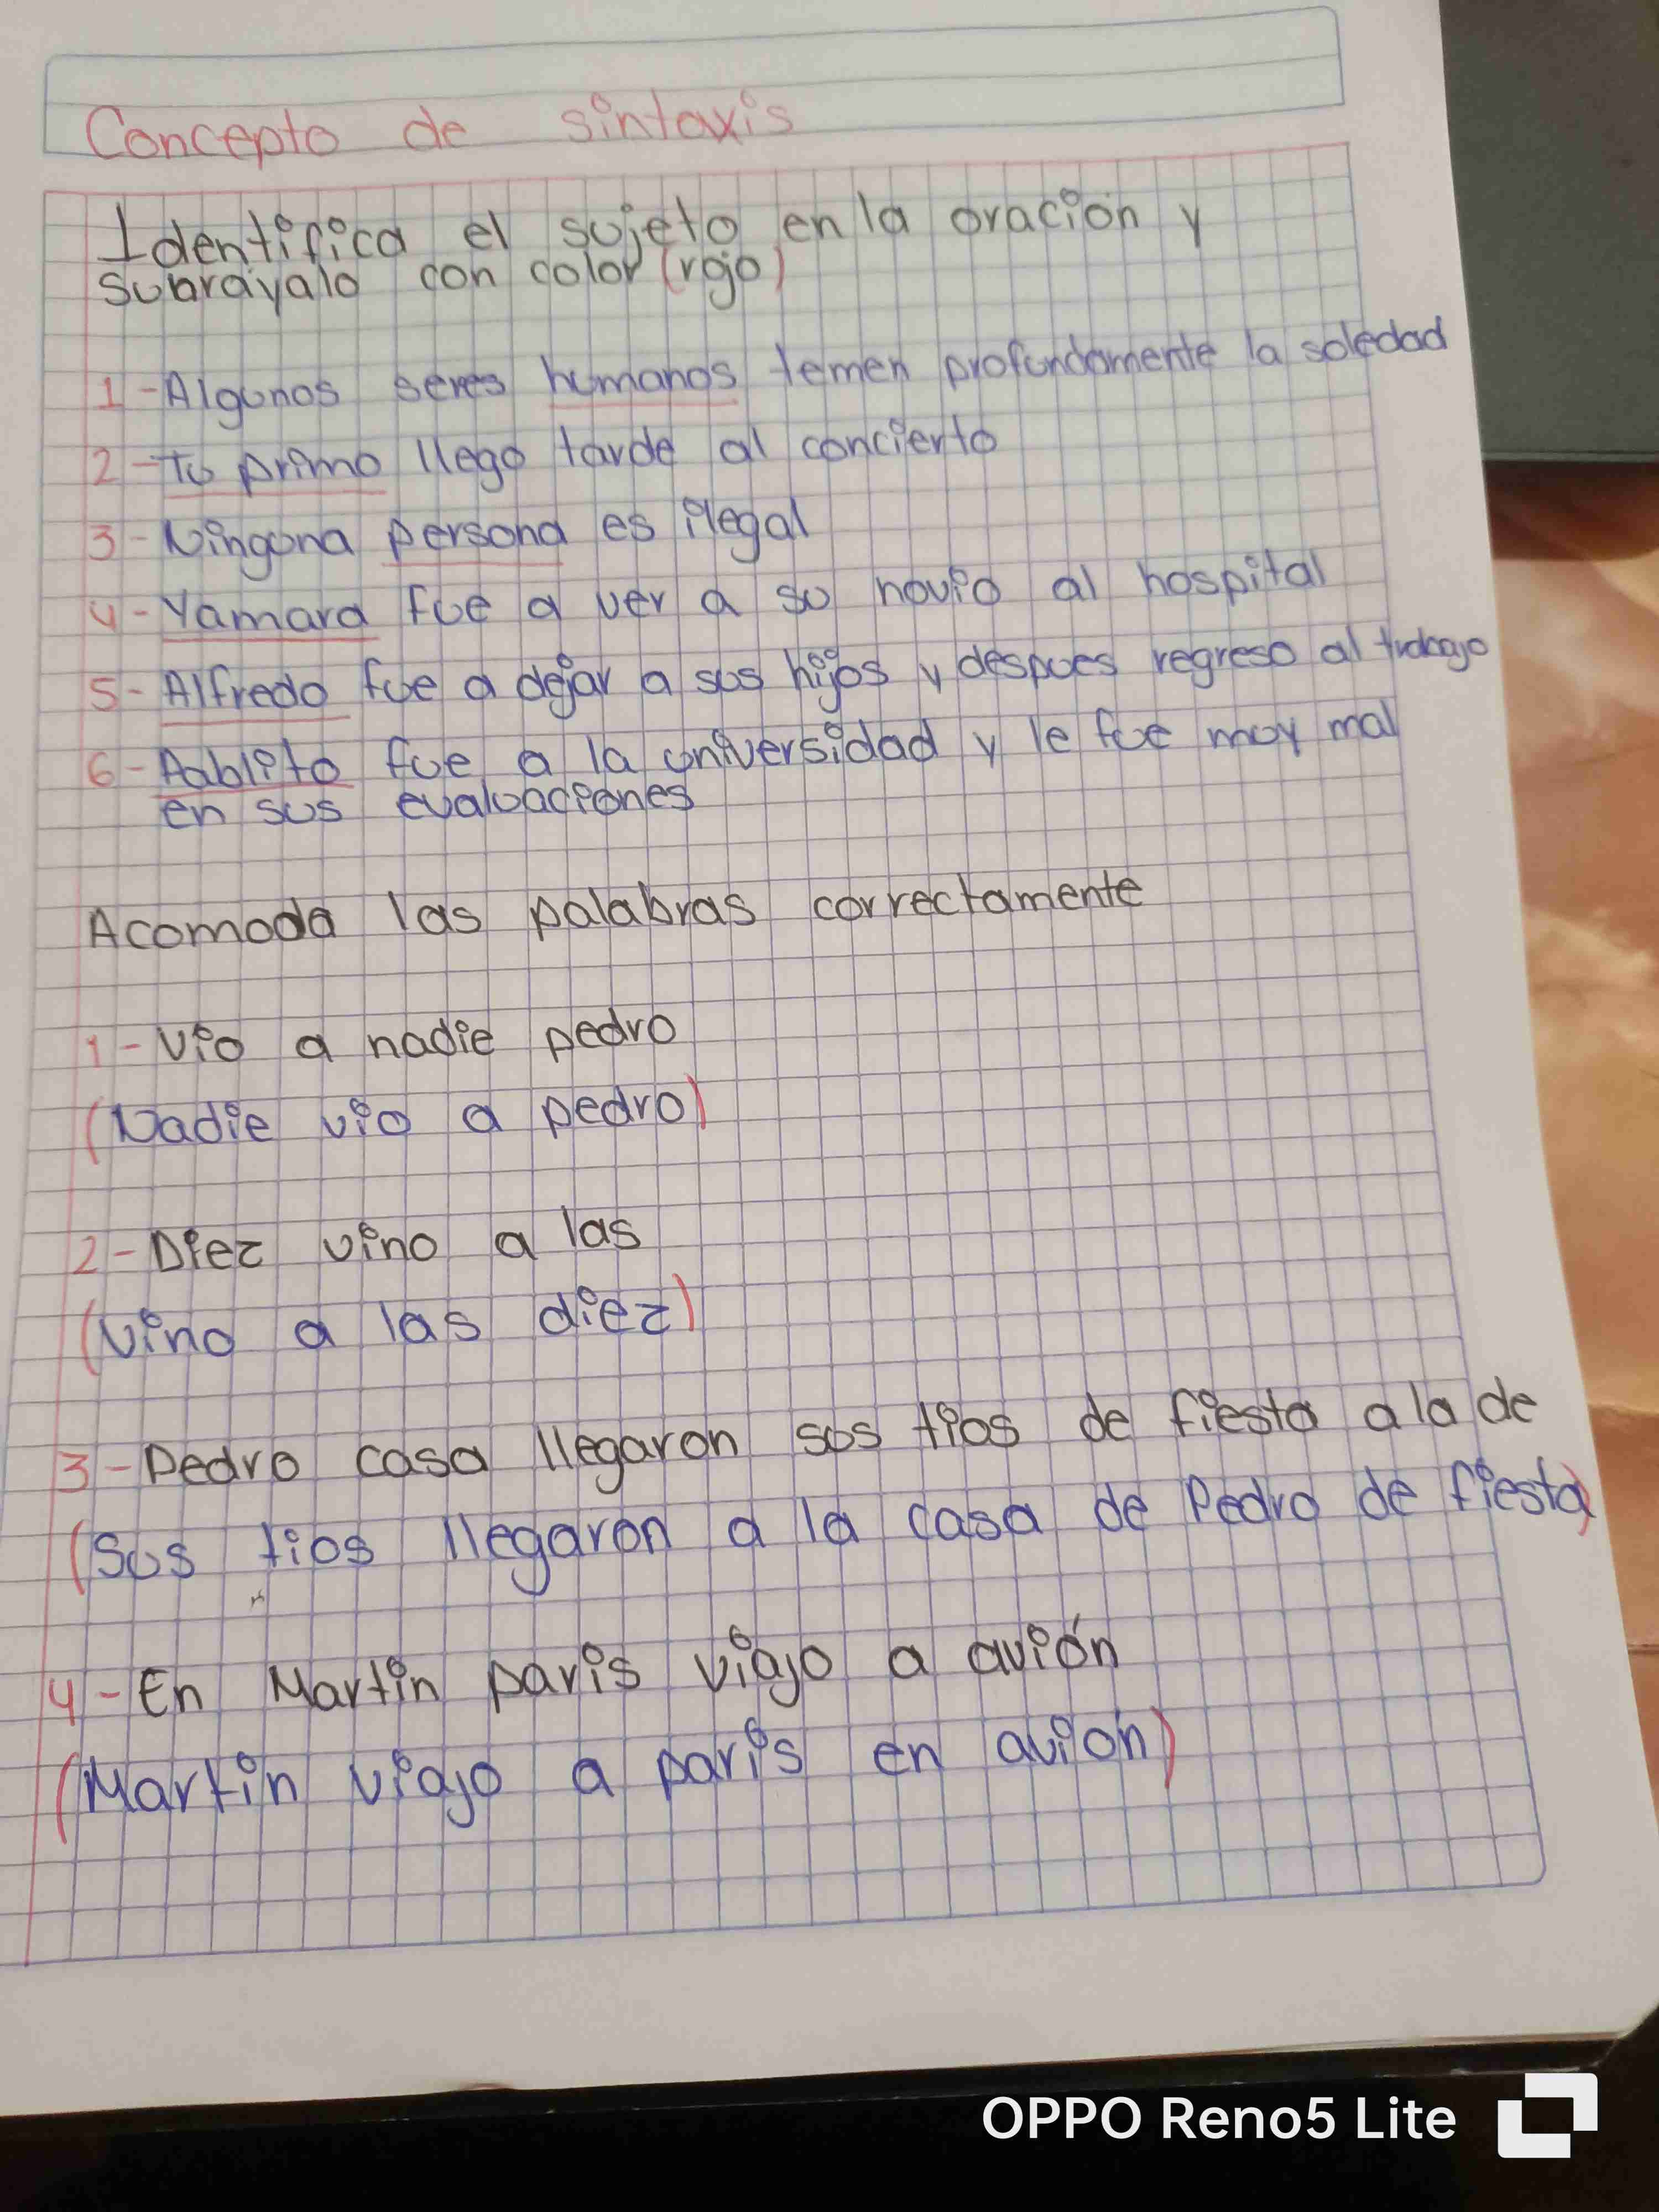 Concepto de sintaxis
Identifica el sujeto en la oración y
subráyalo con color (rojo)
1-Algunos seres humanos temen profundamente la soledad
2-Tu primo llego tarde al concierto
3-Ninguna persona es ilegal
4-Yamara fue a ver a su novio al hospital
5-Alfredo fue a dejar a sus hijos y despues regreso al trabajo
6-Pablito fue a la universidad y le fue muy mal
en sus evaluaciones
Acomoda las palabras correctamente
1-Vio a nadie pedro
(Nadie vio a pedro)
2-Diez vino a las
(Vino a las diez)
3-Pedro casa llegaron sus tios de fiesta a la de
(Sus tios llegaron a la casa de Pedro de fiesta)
4-En Martin paris viajo a avión
(Martin viajo a paris en avión)
OPPO Reno5 Lite